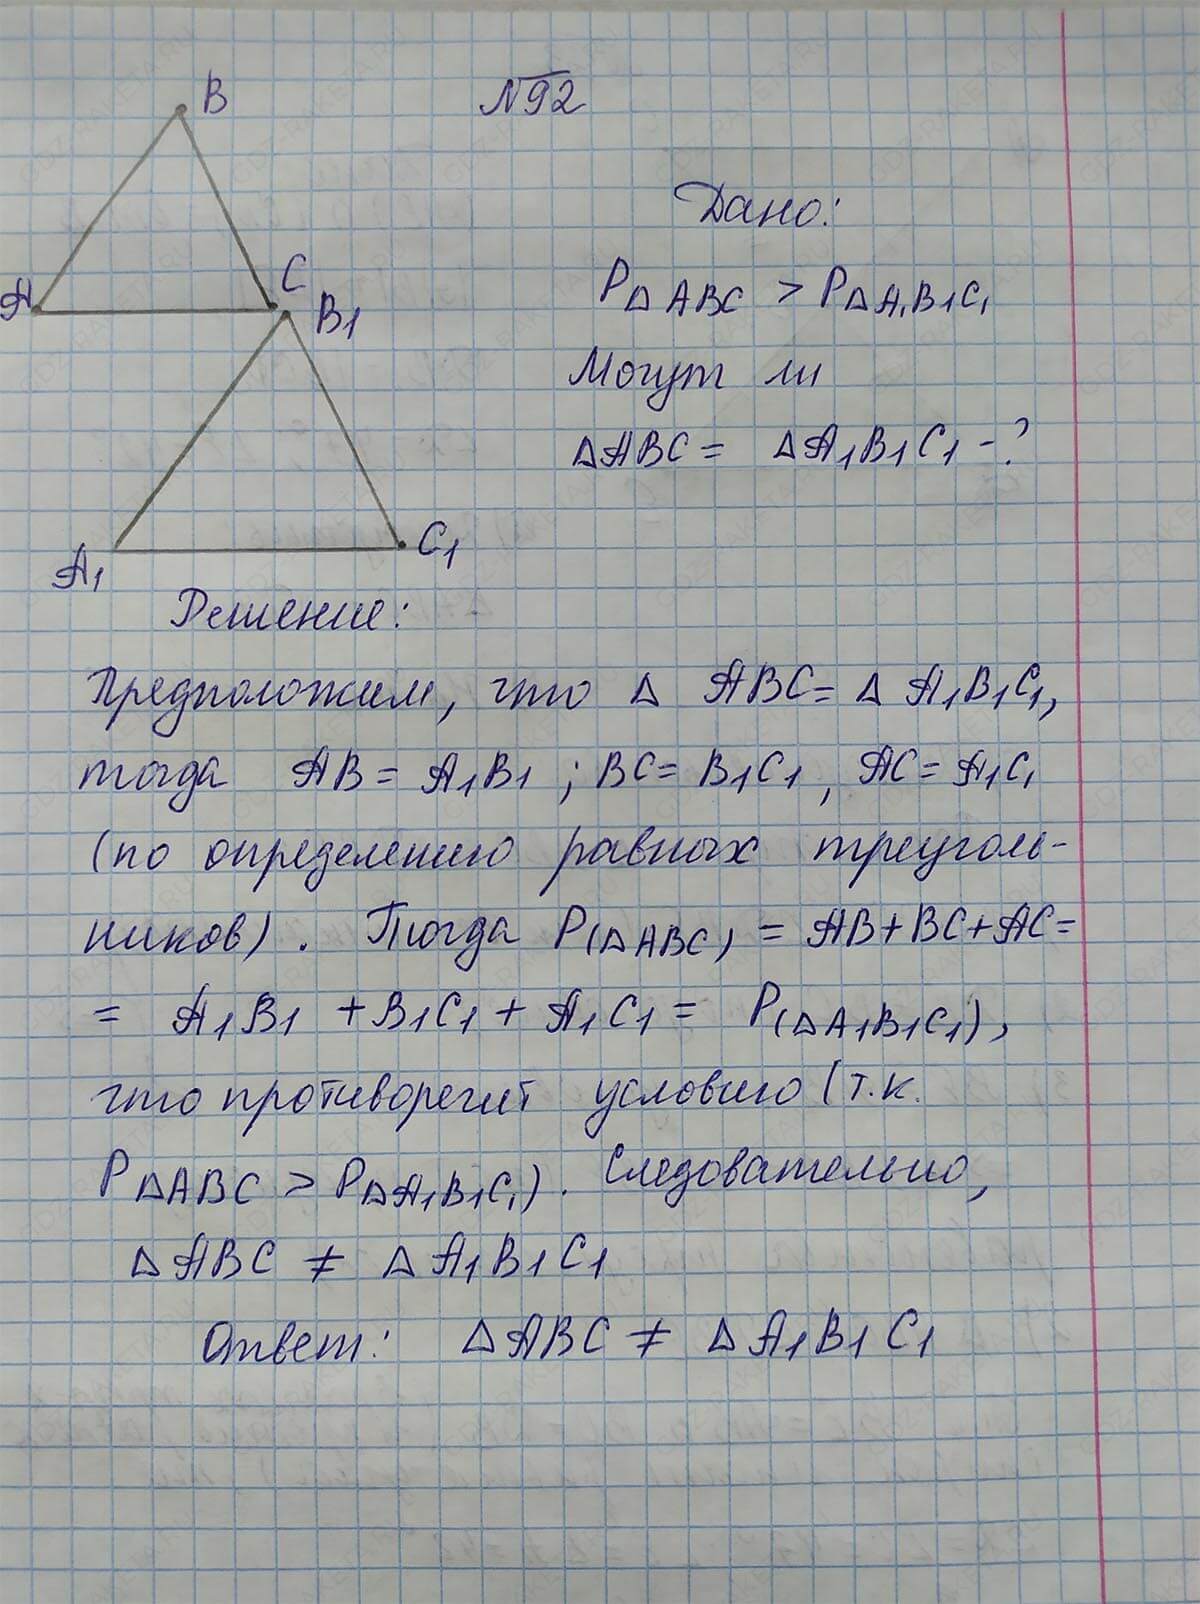 №92
B
Дано:
A
C
B1
P△ABC > P△A1B1C1
Могут ли
△ABC = △A1B1C1 -?
A1
C1
Решение:
Предположим, что △ ABC = △ A1B1C1,
тогда AB = A1B1 ; BC = B1C1 , AC = A1C1
(по определению равных треуголь-
ников) . Тогда P(△ABC) = AB+BC+AC =
= A1B1 + B1C1 + A1C1 = P(△A1B1C1),
что противоречит условию (т.к.
P△ABC > P△A1B1C1) . Следовательно,
△ABC ≠ △A1B1C1
Ответ: △ABC ≠ △A1B1C1